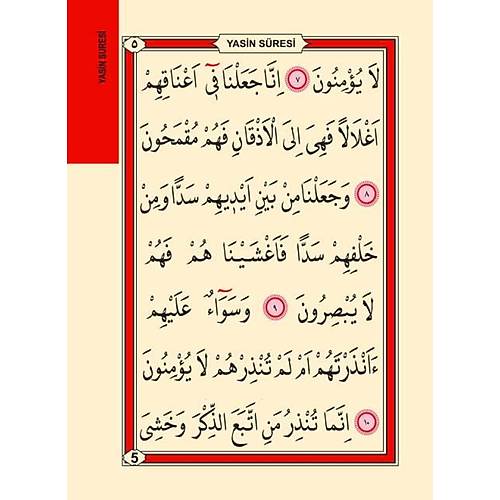 YASİN SÛRESİ
٥
YASİN SÛRESİ
لَا يُؤْمِنُونَ ٧ اِنَّا جَعَلْنَا فٓي اَعْنَاقِهِمْ
اَغْلَالًا فَهِيَ اِلَى الْاَذْقَانِ فَهُمْ مُقْمَحُونَ
٨ وَجَعَلْنَا مِنْ بَيْنِ اَيْدِيهِمْ سَدًّا وَمِنْ
خَلْفِهِمْ سَدًّا فَاَغْشَيْنَا هُمْ فَهُمْ
لَا يُبْصِرُونَ ٩ وَسَوَٓاءٌ عَلَيْهِمْ
ءَاَنْذَرْتَهُمْ اَمْ لَمْ تُنْذِرْهُمْ لَا يُؤْمِنُونَ
١٠ اِنَّمَا تُنْذِرُ مَنِ اتَّبَعَ الذِّكْرَ وَخَشِيَ
5